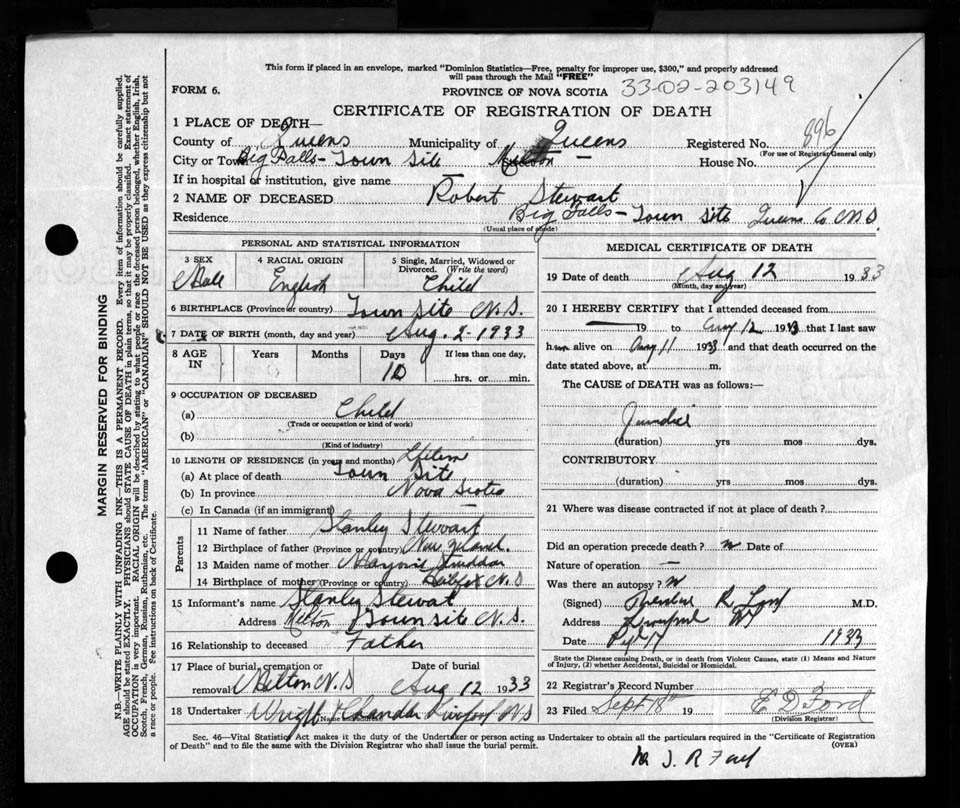 This form if placed in an envelope, marked "Dominion Statistics—Free, penalty for improper use, $300," and properly addressed
will pass through the Mail "FREE"
FORM 6.
PROVINCE OF NOVA SCOTIA
33-02-203149
CERTIFICATE OF REGISTRATION OF DEATH
1 PLACE OF DEATH—
County of Queens Municipality of Queens Registered No. 896
(For use of Registrar General only)
City or Town Big Falls - Town Site Milton — House No.
If in hospital or institution, give name —
2 NAME OF DECEASED Robert Stewart
Residence Big Falls - Town Site Queens Co N.S
(Usual place of abode)
PERSONAL AND STATISTICAL INFORMATION
3 SEX 4 RACIAL ORIGIN 5 Single, Married, Widowed or
Divorced. (Write the word)
Male English Child
6 BIRTHPLACE (Province or country) Town Site N.S.
7 DATE OF BIRTH (month, day and year) Aug. 2 - 1933
8 AGE IN Years Months Days If less than one day,
10
hrs. or min.
9 OCCUPATION OF DECEASED
(a) Child
(Trade or occupation or kind of work)
(b)
(Kind of industry)
10 LENGTH OF RESIDENCE (in years and months) Lifetime
(a) At place of death Town Site
(b) In province Nova Scotia
(c) In Canada (if an immigrant) —
Parents
11 Name of father Stanley Stewart
12 Birthplace of father (Province or country)
13 Maiden name of mother
14 Birthplace of mother (Province or country) Halifax N.S
15 Informant's name Stanley Stewat
Address Milton Town Site N.S.
16 Relationship to deceased Father
17 Place of burial, cremation or Date of burial
removal Milton N.S Aug 12 1933
18 Undertaker Wright Chandler N.S
MEDICAL CERTIFICATE OF DEATH
19 Date of death Aug 12 1933
(Month, day and year)
20 I HEREBY CERTIFY that I attended deceased from
— 19 to Aug 12 1933 that I last saw
him alive on Aug 11 1933 and that death occurred on the
date stated above, at m.
The CAUSE of DEATH was as follows:—
Jaundice
(duration) yrs mos dys.
CONTRIBUTORY
(duration) yrs mos dys.
21 Where was disease contracted if not at place of death?
Did an operation precede death? n Date of
Nature of operation —
Was there an autopsy? n
(Signed) M.D.
Address
Date 1933
State the Disease causing Death, or in death from Violent Causes, state (1) Means and Nature
of Injury, (2) whether Accidental, Suicidal or Homicidal.
22 Registrar's Record Number
23 Filed Sept 18th 19 E D Ford
(Division Registrar)
Sec. 46—Vital Statistics Act makes it the duty of the Undertaker or person acting as Undertaker to obtain all the particulars required in the "Certificate of Registration
of Death" and to file the same with the Division Registrar who shall issue the burial permit.
(OVER)
MARGIN RESERVED FOR BINDING
N.B.—WRITE PLAINLY WITH UNFADING INK—THIS IS A PERMANENT RECORD. Every item of information should be carefully supplied.
AGE should be stated EXACTLY. PHYSICIANS should STATE CAUSE OF DEATH in plain terms, so that it may be properly classified. Exact statement of
OCCUPATION is very important. RACIAL ORIGIN will be described by stating to what people or race the deceased person belonged, whether English, Irish,
Scotch, French, German, Russian, Ruthenian, etc. The terms "AMERICAN" or "CANADIAN" SHOULD NOT BE USED as they express citizenship but not
a race or people. See instructions on back of Certificate.